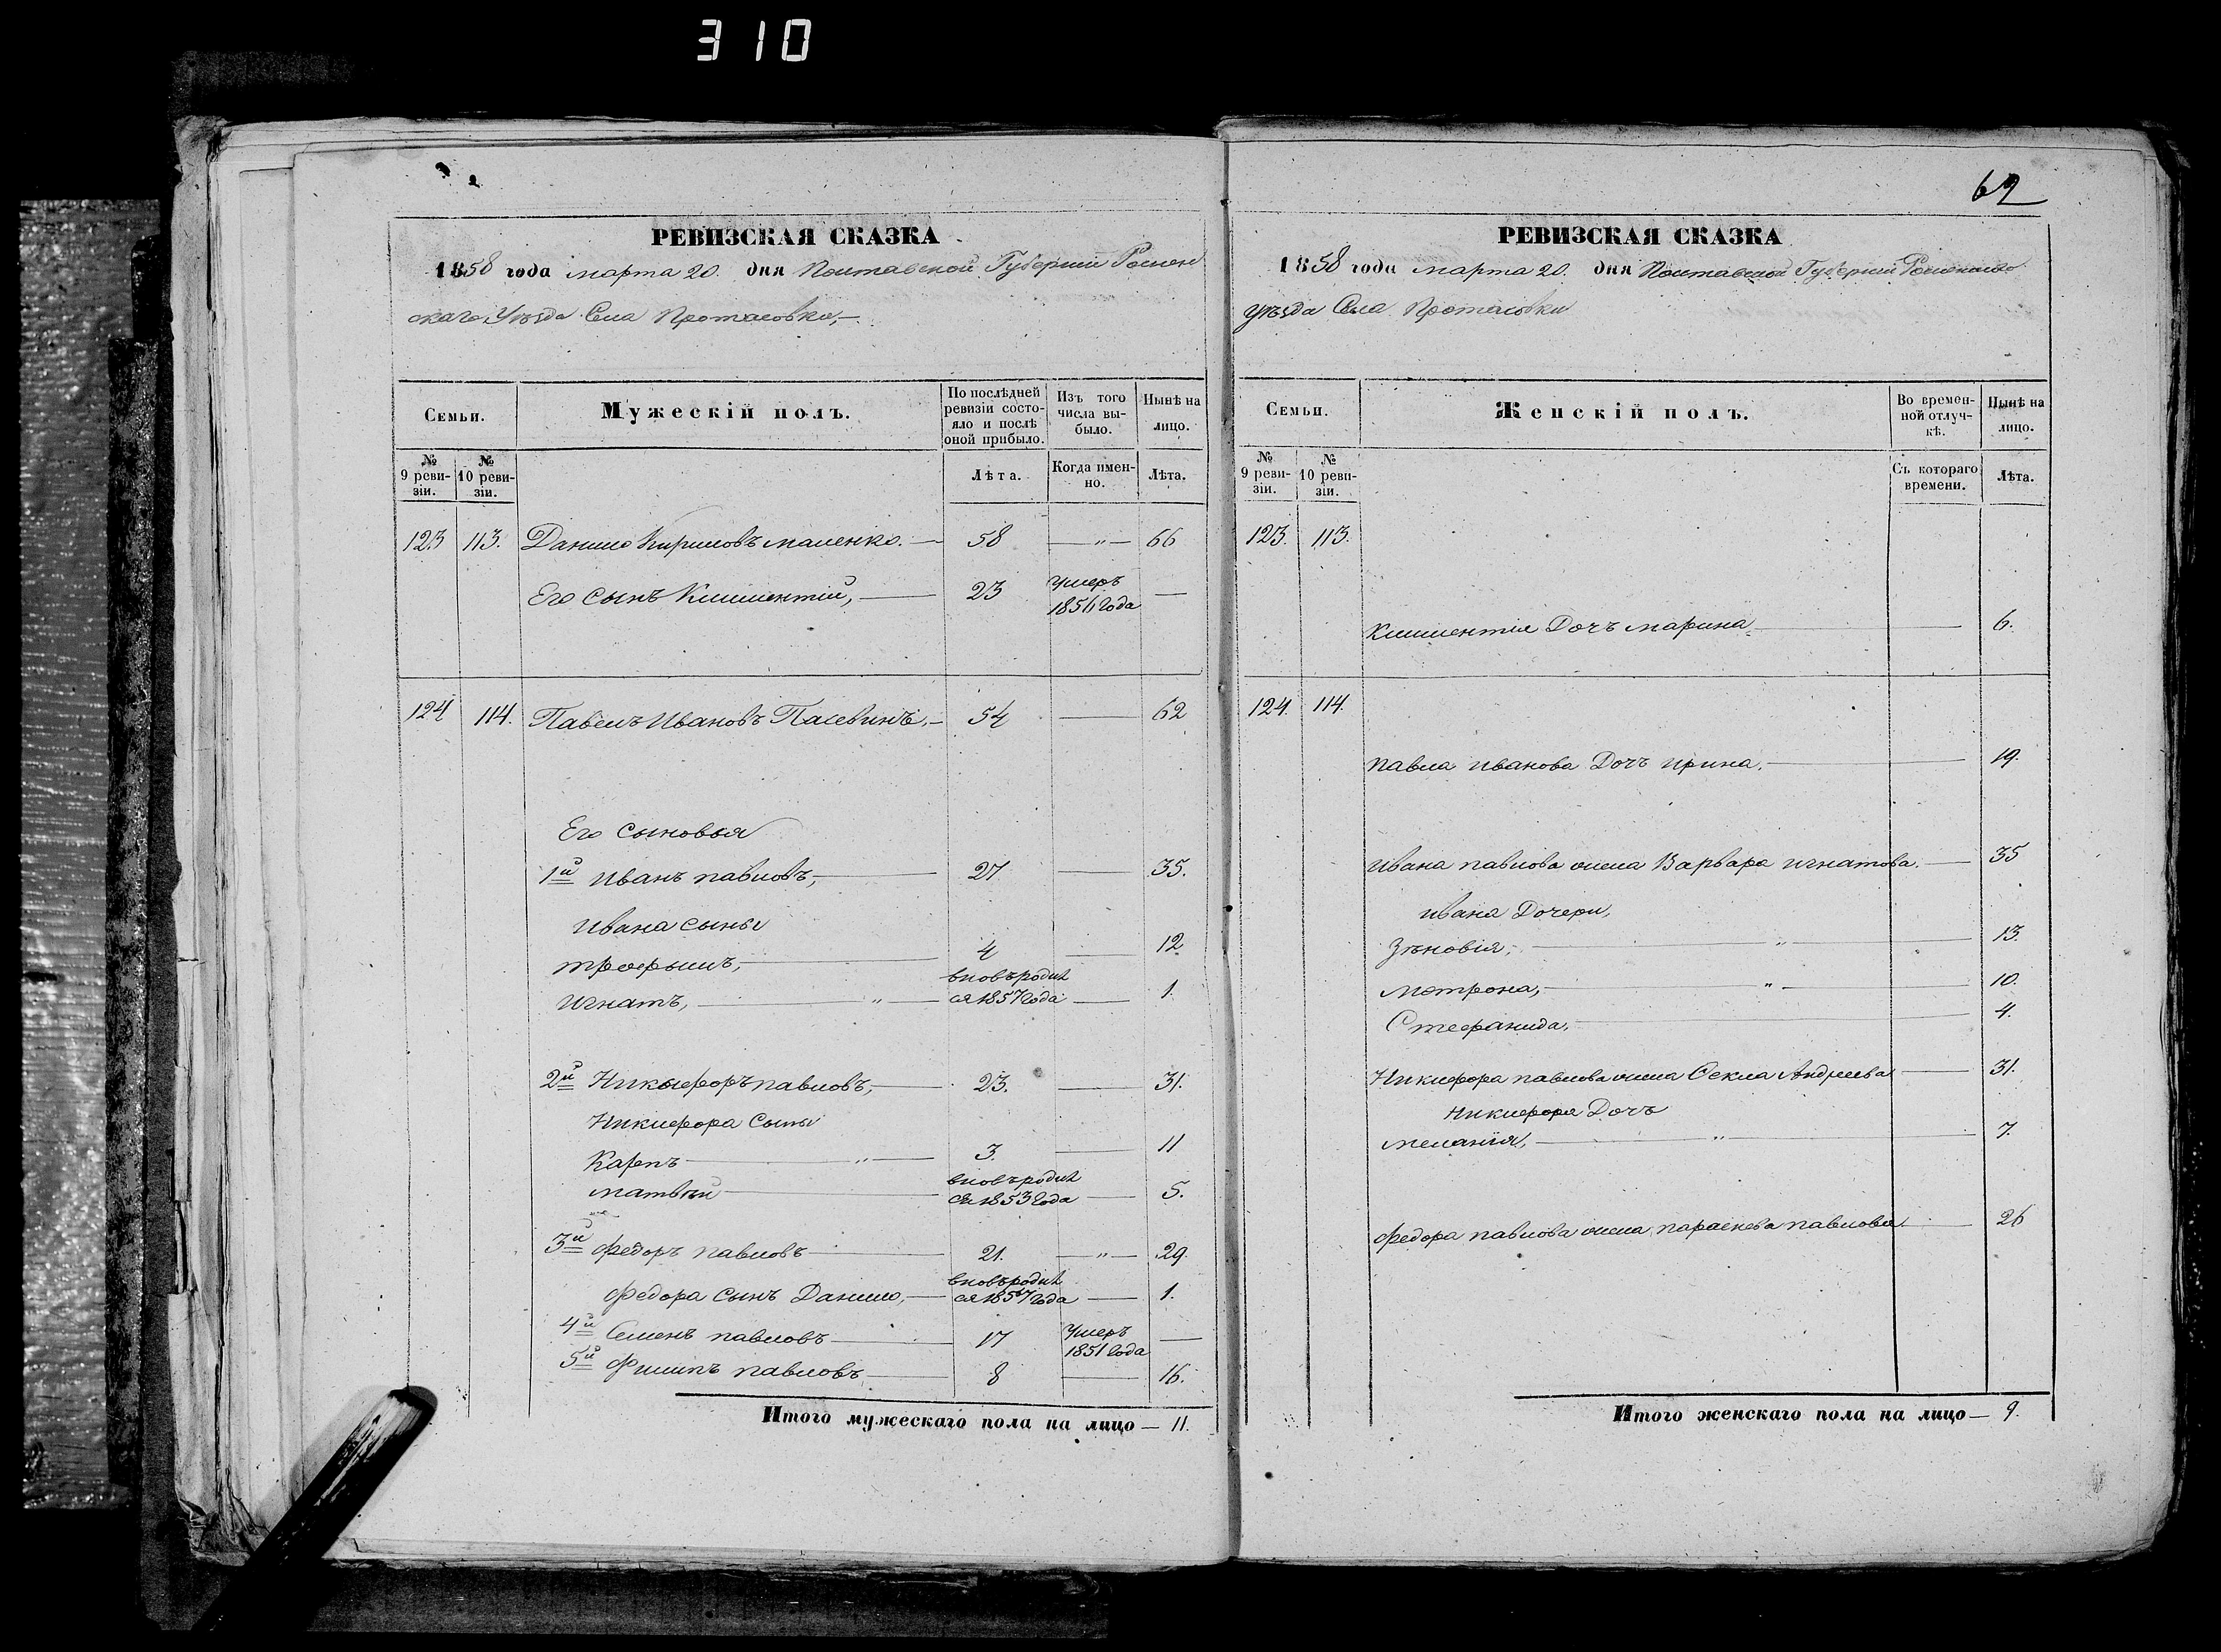 310
РЕВИЗСКАЯ СКАЗКА
1858 года марта 20. дня Полтавской Губернии Ромен
скаго Уѣзда Села Протасовки,
Семьи.
Мужескій полъ.
По послѣдней ревизіи состояло и послѣ оной прибыло.
Изъ того числа выбыло.
Нынѣ на лицо.
№ 9 ревизіи.
№ 10 ревизіи.
Лѣта.
Когда именно.
Лѣта.
123 113. Данило Кириловъ маленко. 58 — „ — 66
Его сынъ Климентій, 23 умеръ 1856 года —
124 114. Павелъ Ивановъ 54 — 62
Его сыновья
1й Иванъ павловъ, 27 — 35.
Ивана сыны
трофымъ, 4 — 12
Игнатъ, „ вновь родил ся 1857 года — 1.
2й Никыфоръ павловъ, 23. — 31.
Никифора Сыны
Карпъ „ 3. — 11
матвѣй вновь родил ся 1853 года — 5.
3й федоръ павловъ 21. — „ — 29.
федора сынъ Данило, вновь родил ся 1857 года — 1.
4й Семенъ павловъ 17 Умеръ 1851 года —
5й Филипъ павловъ 8 — 16.
Итого мужескаго пола на лицо — 11.
69
РЕВИЗСКАЯ СКАЗКА
1858 года марта 20. дня Полтавской Губерніи Роменскаго
уѣзда Села Протасовки
Семьи.
Женскій полъ.
Во временной отлучкѣ.
Нынѣ на лицо.
№ 9 ревизіи.
№ 10 ревизіи.
Съ котораго времени.
Лѣта.
123. 113.
Климентия Дочъ марина 6.
124. 114.
павла иванова Дочъ ирина. 19.
ивана павлова жена Варвара игнатова. 35
ивана Дочери,
Зѣновія, „ 13.
мотрона, „ 10.
Стефанида, 4.
Никифора павлова жена Фекла Андреева 31.
Никифора Дочъ
меланія, „ 7.
федора павлова жена параскева павлова 26
Итого женскаго пола на лицо — 9.